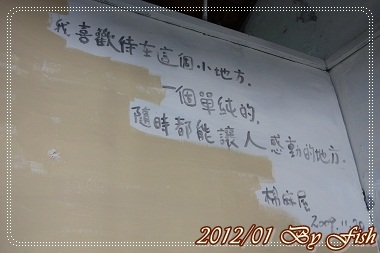 我喜歡待在這個小地方.
一個單純的.
隨時都能讓人感動的地方.
棉麻屋
2009.11.20
2012/01 By Fish